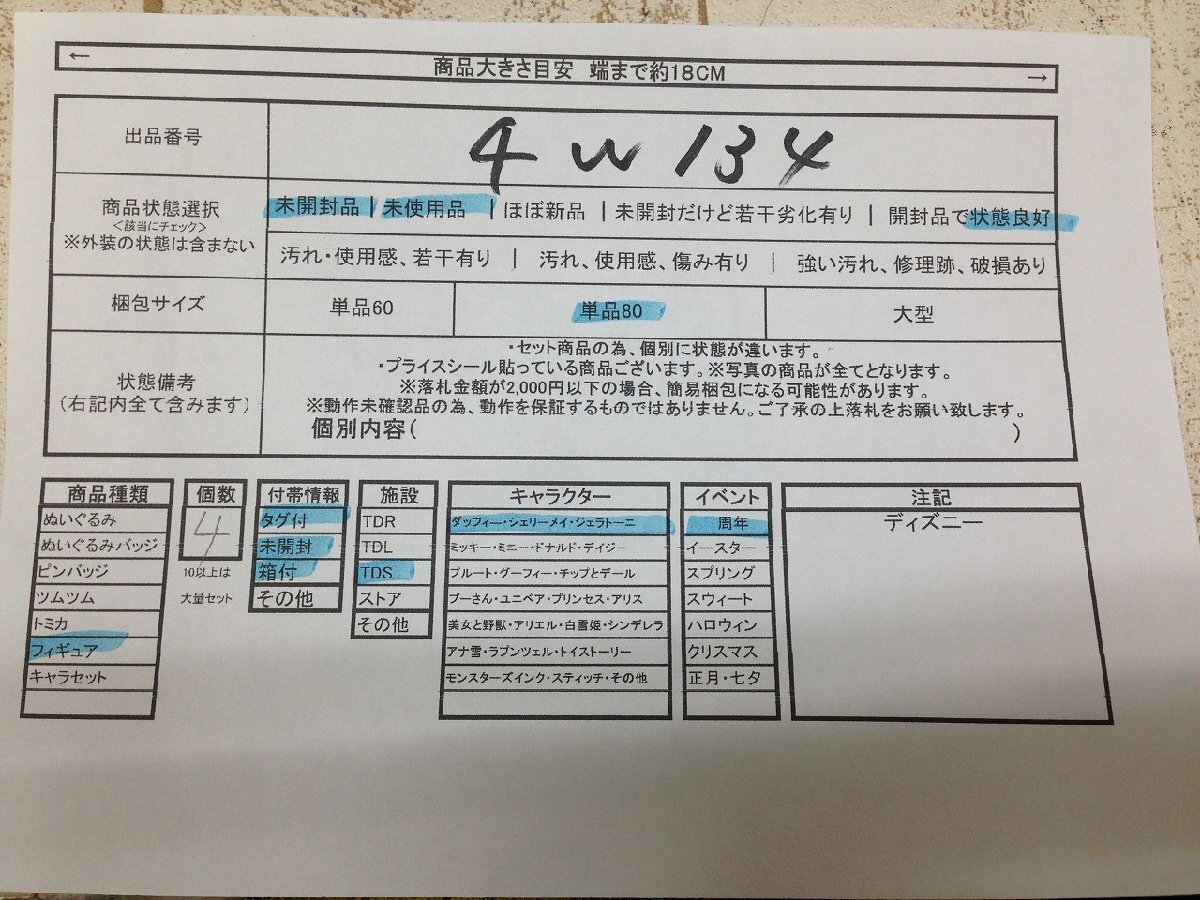 ← 商品大きさ目安 端まで約18CM →
出品番号 4W134
商品状態選択
<該当にチェック>
※外装の状態は含まない
未開封品 | 未使用品 | ほぼ新品 | 未開封だけど若干劣化有り | 開封品で状態良好
汚れ・使用感、若干有り | 汚れ、使用感、傷み有り | 強い汚れ、修理跡、破損あり
梱包サイズ 単品60 単品80 大型
状態備考
(右記内全て含みます)
・セット商品の為、個別に状態が違います。
・プライスシール貼っている商品ございます。※写真の商品が全てとなります。
※落札金額が2,000円以下の場合、簡易梱包になる可能性があります。
※動作未確認品の為、動作を保証するものではありません。ご了承の上落札をお願い致します。
個別内容( )
商品種類
ぬいぐるみ
ぬいぐるみバッジ
ピンバッジ
ツムツム
トミカ
フィギュア
キャラセット
個数
4
10以上は
大量セット
付帯情報
タグ付
未開封
箱付
その他
施設
TDR
TDL
TDS
ストア
その他
キャラクター
ダッフィー・シェリーメイ・ジェラトーニ
ミッキー・ミニー・ドナルド・デイジー
プルート・グーフィー・チップとデール
プーさん・ユニベア・プリンセス・アリス
美女と野獣・アリエル・白雪姫・シンデレラ
アナ雪・ラプンツェル・トイストーリー
モンスターズインク・スティッチ・その他
イベント
周年
イースター
スプリング
スウィート
ハロウィン
クリスマス
正月・七夕
注記
ディズニー